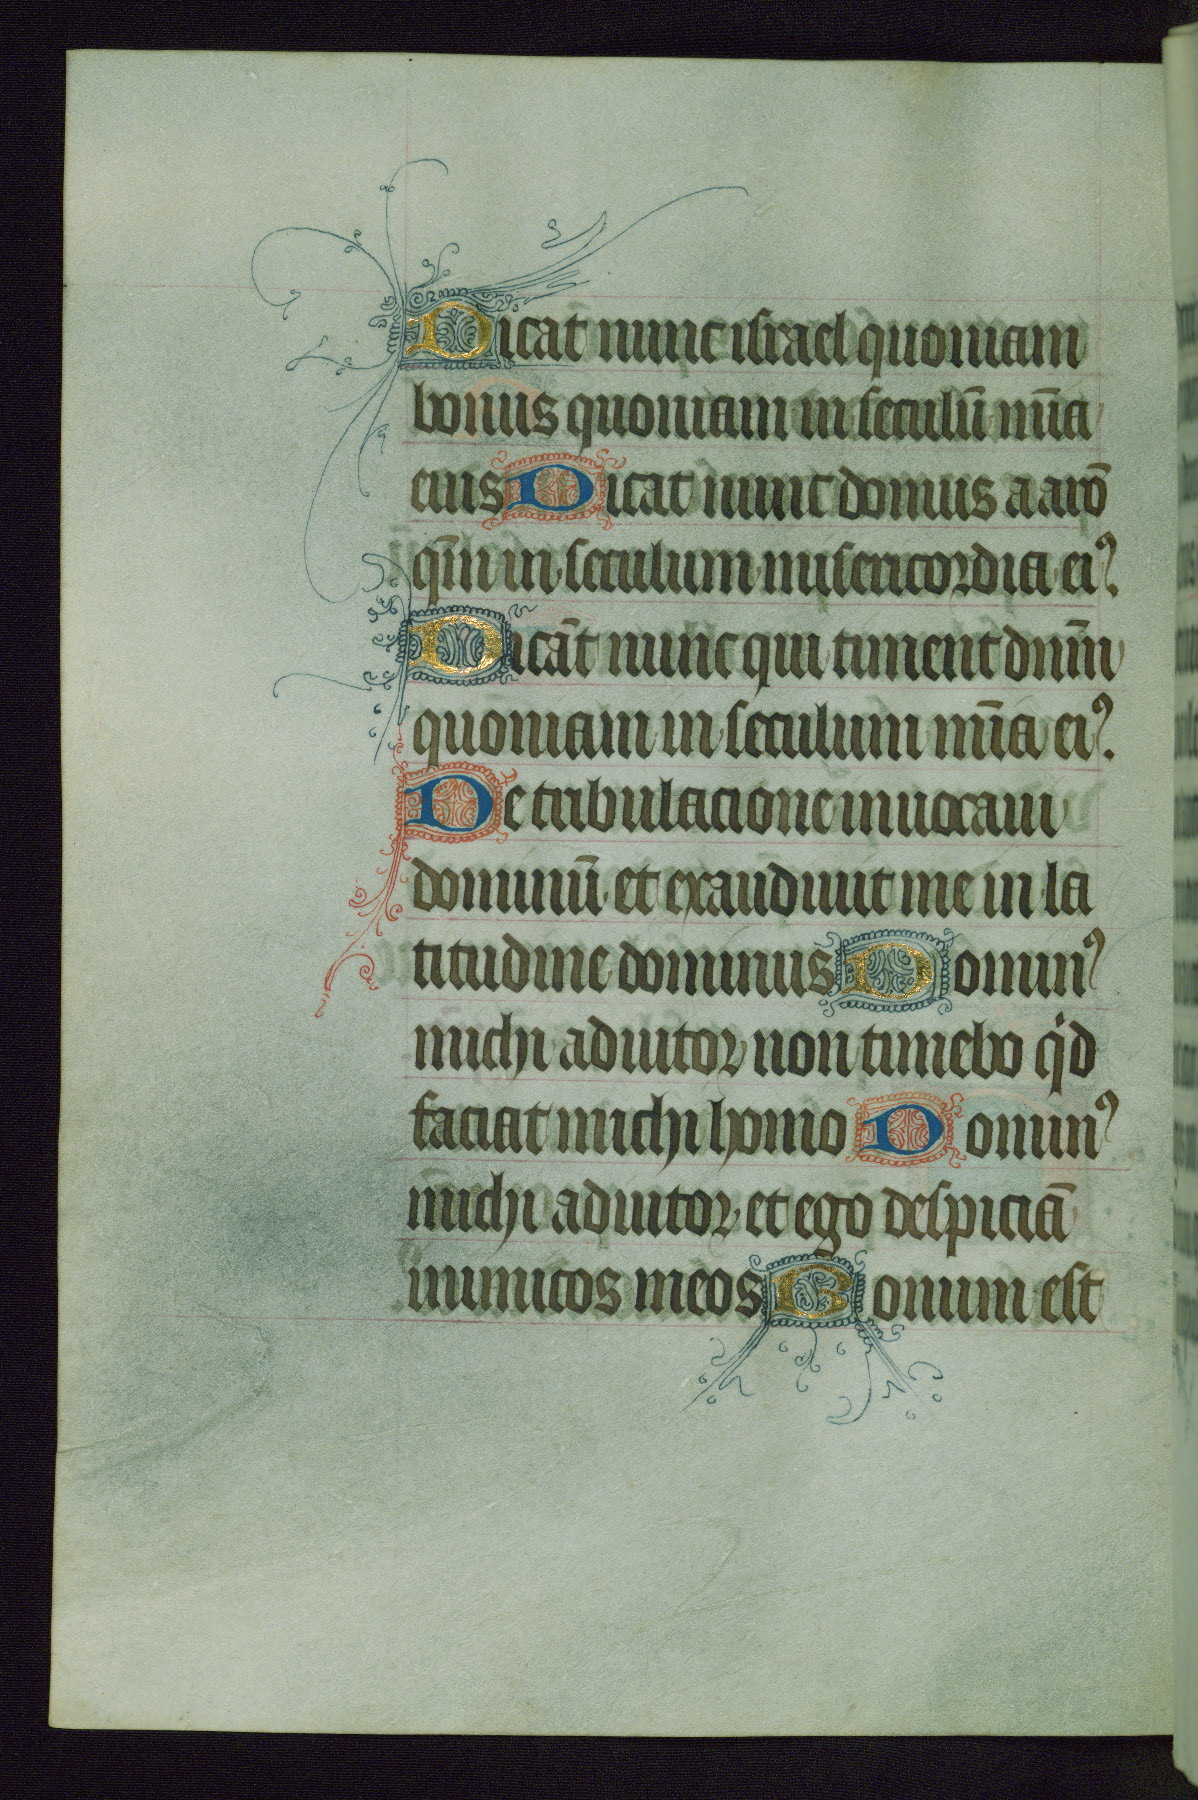 Dicat nunc israel quoniam
bonus quoniam in seculū mīa
eius Dicat nunc domus aarō
qm̄ in seculum misericordia eiꝰ.
Dicāt nunc qui timent dnm̄
quoniam in seculum mīa eiꝰ.
De tribulacione inuocaui
dominū et exaudiuit me in la
titudine dominus Dominꝰ
michi adiutor non timebo qͥd
faciat michi homo Dominꝰ
michi adiutor et ego despiciā
inimicos meos Bonum est